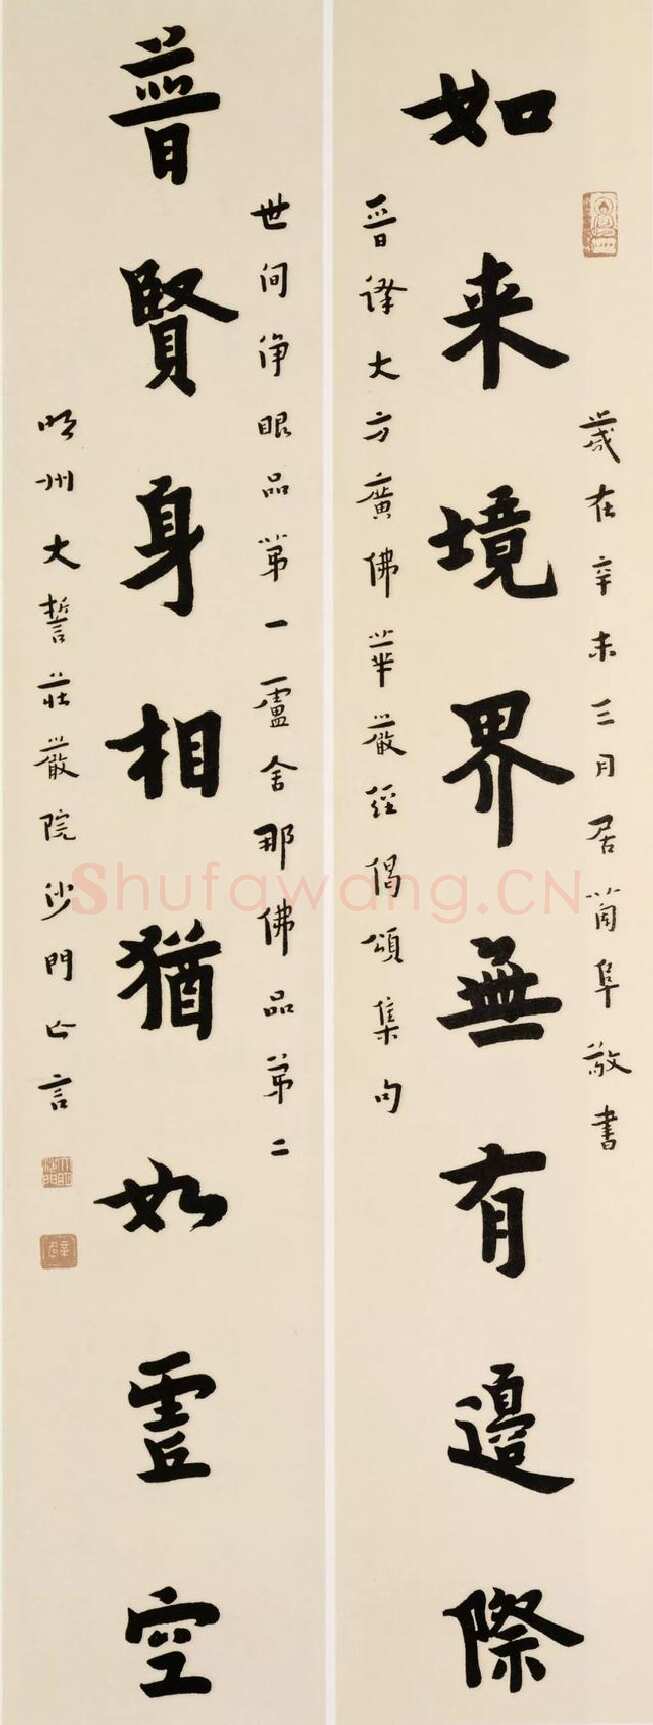 如来境界無有邊際
歲在辛未三月居蘭阜敬書
晋譯大方廣佛華嚴經偈頌集句
普賢身相猶如虛空
世间淨眼品第一盧舍那佛品第二
明州大誓莊嚴院沙門亡言
Shufawang.CN